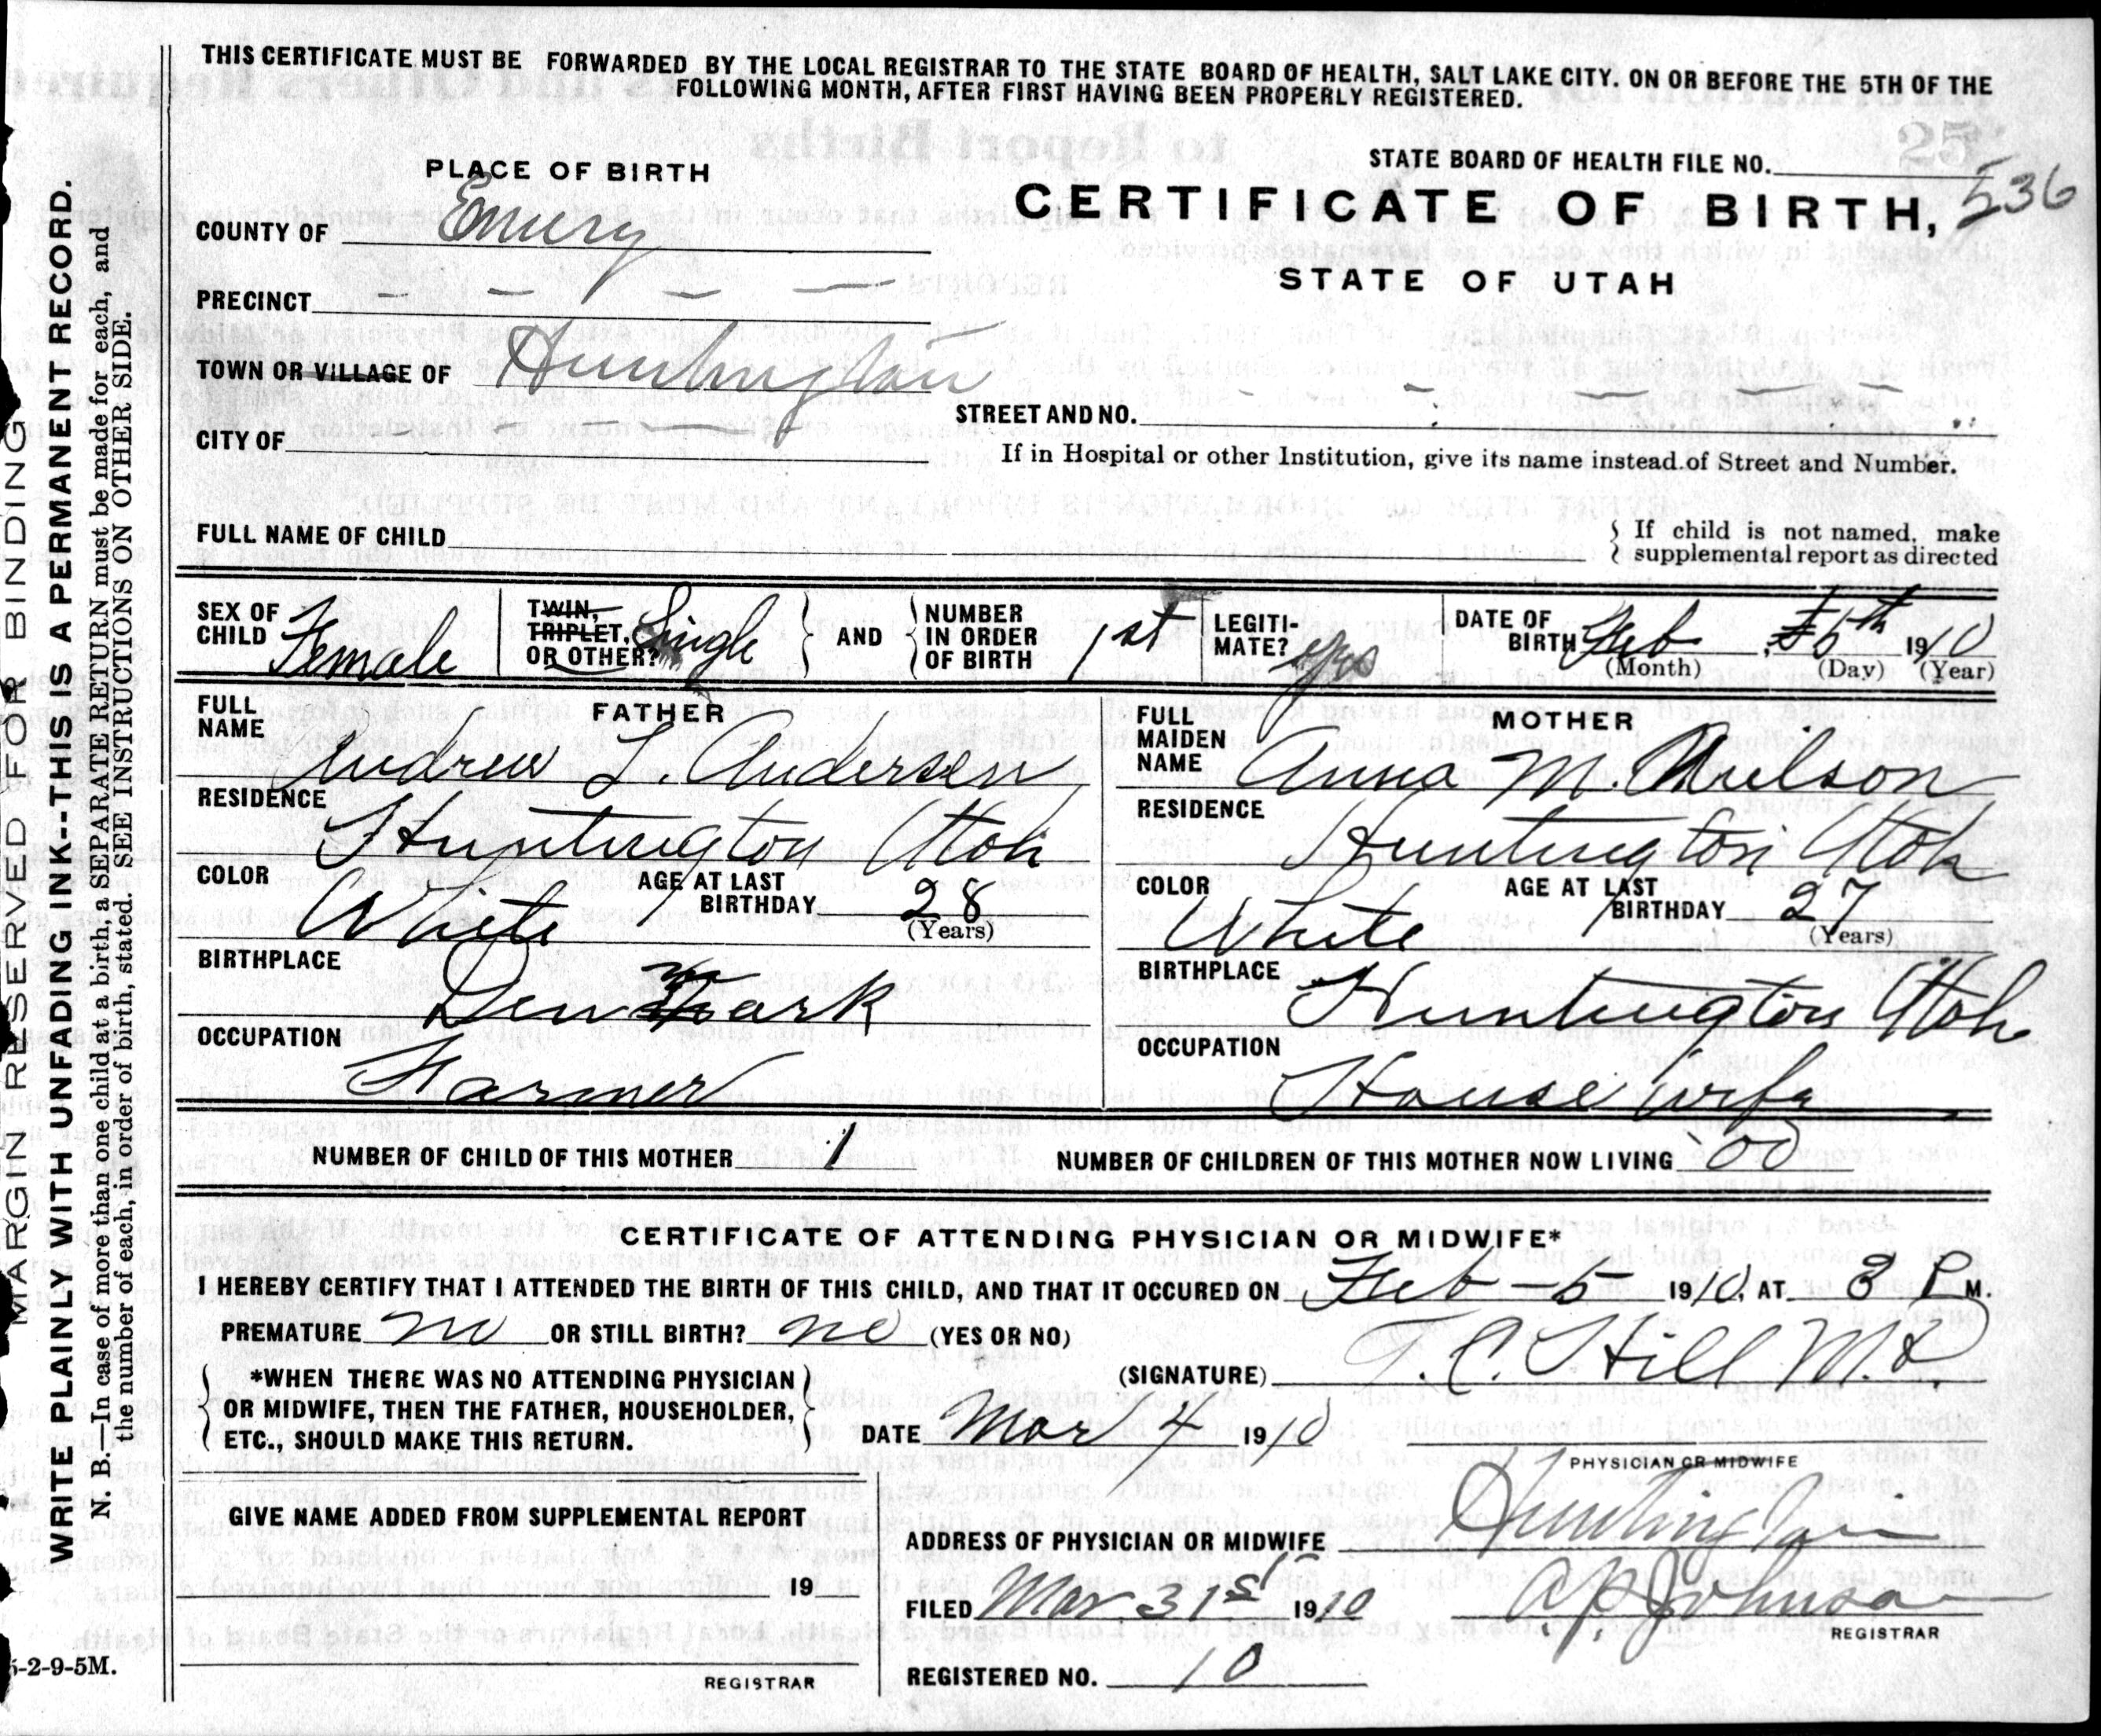 THIS CERTIFICATE MUST BE FORWARDED BY THE LOCAL REGISTRAR TO THE STATE BOARD OF HEALTH, SALT LAKE CITY. ON OR BEFORE THE 5TH OF THE
FOLLOWING MONTH, AFTER FIRST HAVING BEEN PROPERLY REGISTERED.
MARGIN RESERVED FOR BINDING
WRITE PLAINLY WITH UNFADING INK---THIS IS A PERMANENT RECORD.
N. B.—In case of more than one child at a birth, a SEPARATE RETURN must be made for each, and
the number of each, in order of birth, stated. SEE INSTRUCTIONS ON OTHER SIDE.
PLACE OF BIRTH
STATE BOARD OF HEALTH FILE NO.
CERTIFICATE OF BIRTH, 536
STATE OF UTAH
COUNTY OF Emery
PRECINCT
TOWN OR VILLAGE OF Huntington
STREET AND NO.
CITY OF
If in Hospital or other Institution, give its name instead of Street and Number.
FULL NAME OF CHILD
If child is not named, make
supplemental report as directed
SEX OF CHILD Female
TWIN, TRIPLET, OR OTHER? Single
AND
NUMBER IN ORDER OF BIRTH 1st
LEGITI-MATE? yes
DATE OF BIRTH Feb 5th 1910
(Month) (Day) (Year)
FATHER
FULL NAME Andrew L. Andersen
RESIDENCE Huntington Utah
COLOR White AGE AT LAST BIRTHDAY 28
(Years)
BIRTHPLACE Denmark
OCCUPATION Farmer
MOTHER
FULL MAIDEN NAME Anna M. Nielson
RESIDENCE Huntington Utah
COLOR White AGE AT LAST BIRTHDAY 27
(Years)
BIRTHPLACE Huntington Utah
OCCUPATION House wife
NUMBER OF CHILD OF THIS MOTHER 1 NUMBER OF CHILDREN OF THIS MOTHER NOW LIVING 00
CERTIFICATE OF ATTENDING PHYSICIAN OR MIDWIFE*
I HEREBY CERTIFY THAT I ATTENDED THE BIRTH OF THIS CHILD, AND THAT IT OCCURED ON Feb - 5 1910, AT 3 P M.
PREMATURE no OR STILL BIRTH? no (YES OR NO)
*WHEN THERE WAS NO ATTENDING PHYSICIAN
OR MIDWIFE, THEN THE FATHER, HOUSEHOLDER,
ETC., SHOULD MAKE THIS RETURN.
(SIGNATURE) T. C. Hill M.D
DATE Mar 4 1910
PHYSICIAN OR MIDWIFE
GIVE NAME ADDED FROM SUPPLEMENTAL REPORT
19
REGISTRAR
ADDRESS OF PHYSICIAN OR MIDWIFE Huntington
FILED Mar 31st 1910 A. P. Johnson
REGISTRAR
REGISTERED NO. 10
5-2-9-5M.